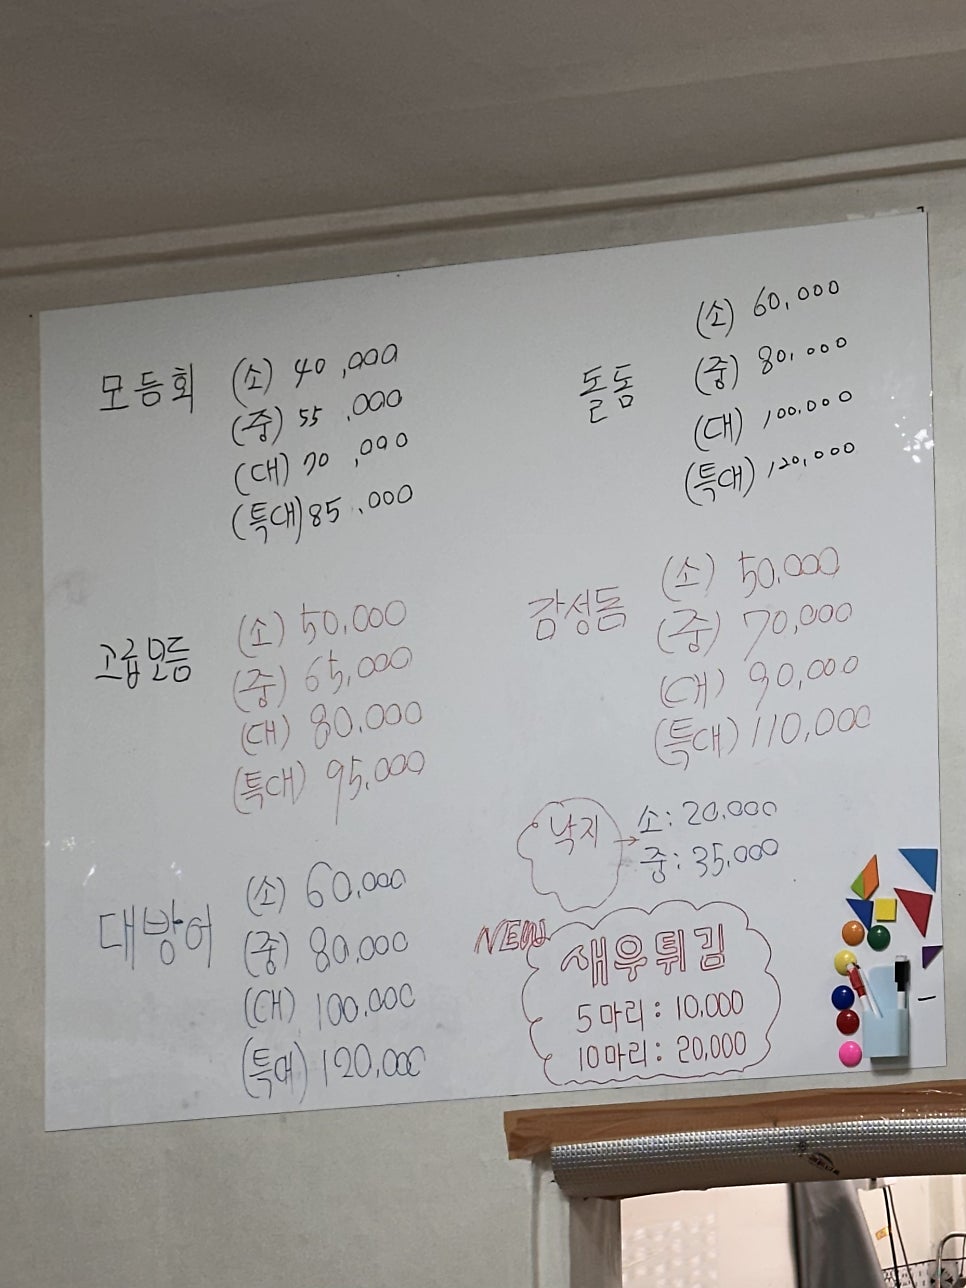 모듬회 (소) 40,000
(중) 55,000
(대) 70,000
(특대) 85,000
돌돔 (소) 60,000
(중) 80,000
(대) 100,000
(특대) 120,000
고급모듬 (소) 50,000
(중) 65,000
(대) 80,000
(특대) 95,000
감성돔 (소) 50,000
(중) 70,000
(대) 90,000
(특대) 110,000
대방어 (소) 60,000
(중) 80,000
(대) 100,000
(특대) 120,000
낙지 → 소: 20,000
중: 35,000
NEW
새우튀김
5마리: 10,000
10마리: 20,000